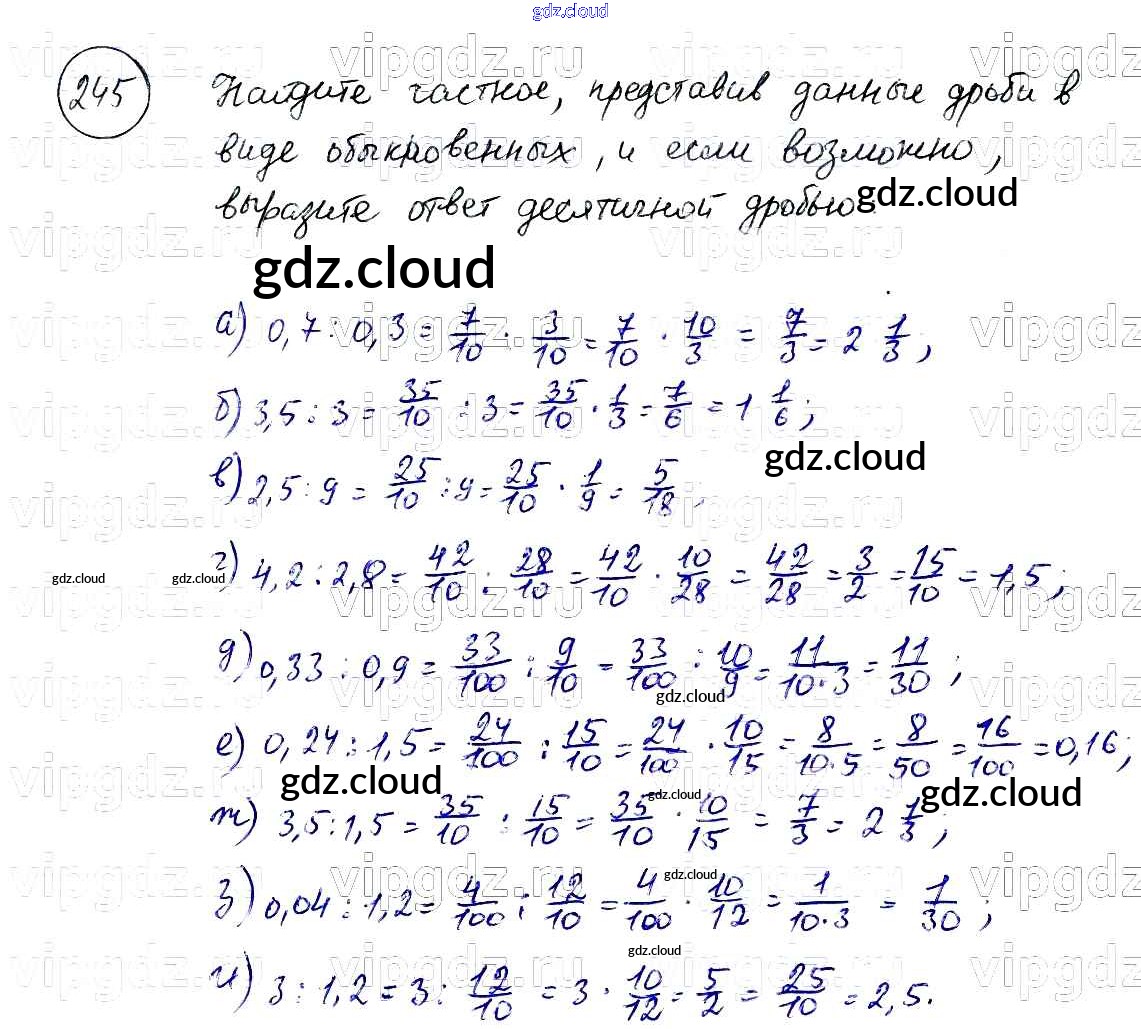 gdz.cloud
245
Найдите частное, представив данные дроби в
виде обыкновенных, и если возможно,
выразите ответ десятичной дробью.
gdz.cloud
gdz.cloud
а) 0,7 : 0,3 = 7/10 : 3/10 = 7/10 · 10/3 = 7/3 = 2 1/3;
б) 3,5 : 3 = 35/10 : 3 = 35/10 · 1/3 = 7/6 = 1 1/6;
gdz.cloud
в) 2,5 : 9 = 25/10 : 9 = 25/10 · 1/9 = 5/18.
gdz.cloud gdz.cloud
г) 4,2 : 2,8 = 42/10 : 28/10 = 42/10 · 10/28 = 42/28 = 3/2 = 15/10 = 1,5;
д) 0,33 : 0,9 = 33/100 : 9/10 = 33/100 : 10/9 = 11/10·3 = 11/30;
gdz.cloud
е) 0,24 : 1,5 = 24/100 : 15/10 = 24/100 · 10/15 = 8/10·5 = 8/50 = 16/100 = 0,16;
gdz.cloud gdz.cloud gdz.cloud
ж) 3,5 : 1,5 = 35/10 : 15/10 = 35/10 · 10/15 = 7/3 = 2 1/3;
gdz.cloud
з) 0,04 : 1,2 = 4/100 : 12/10 = 4/100 · 10/12 = 1/10·3 = 1/30;
gdz.cloud
и) 3 : 1,2 = 3 : 12/10 = 3 · 10/12 = 5/2 = 25/10 = 2,5.